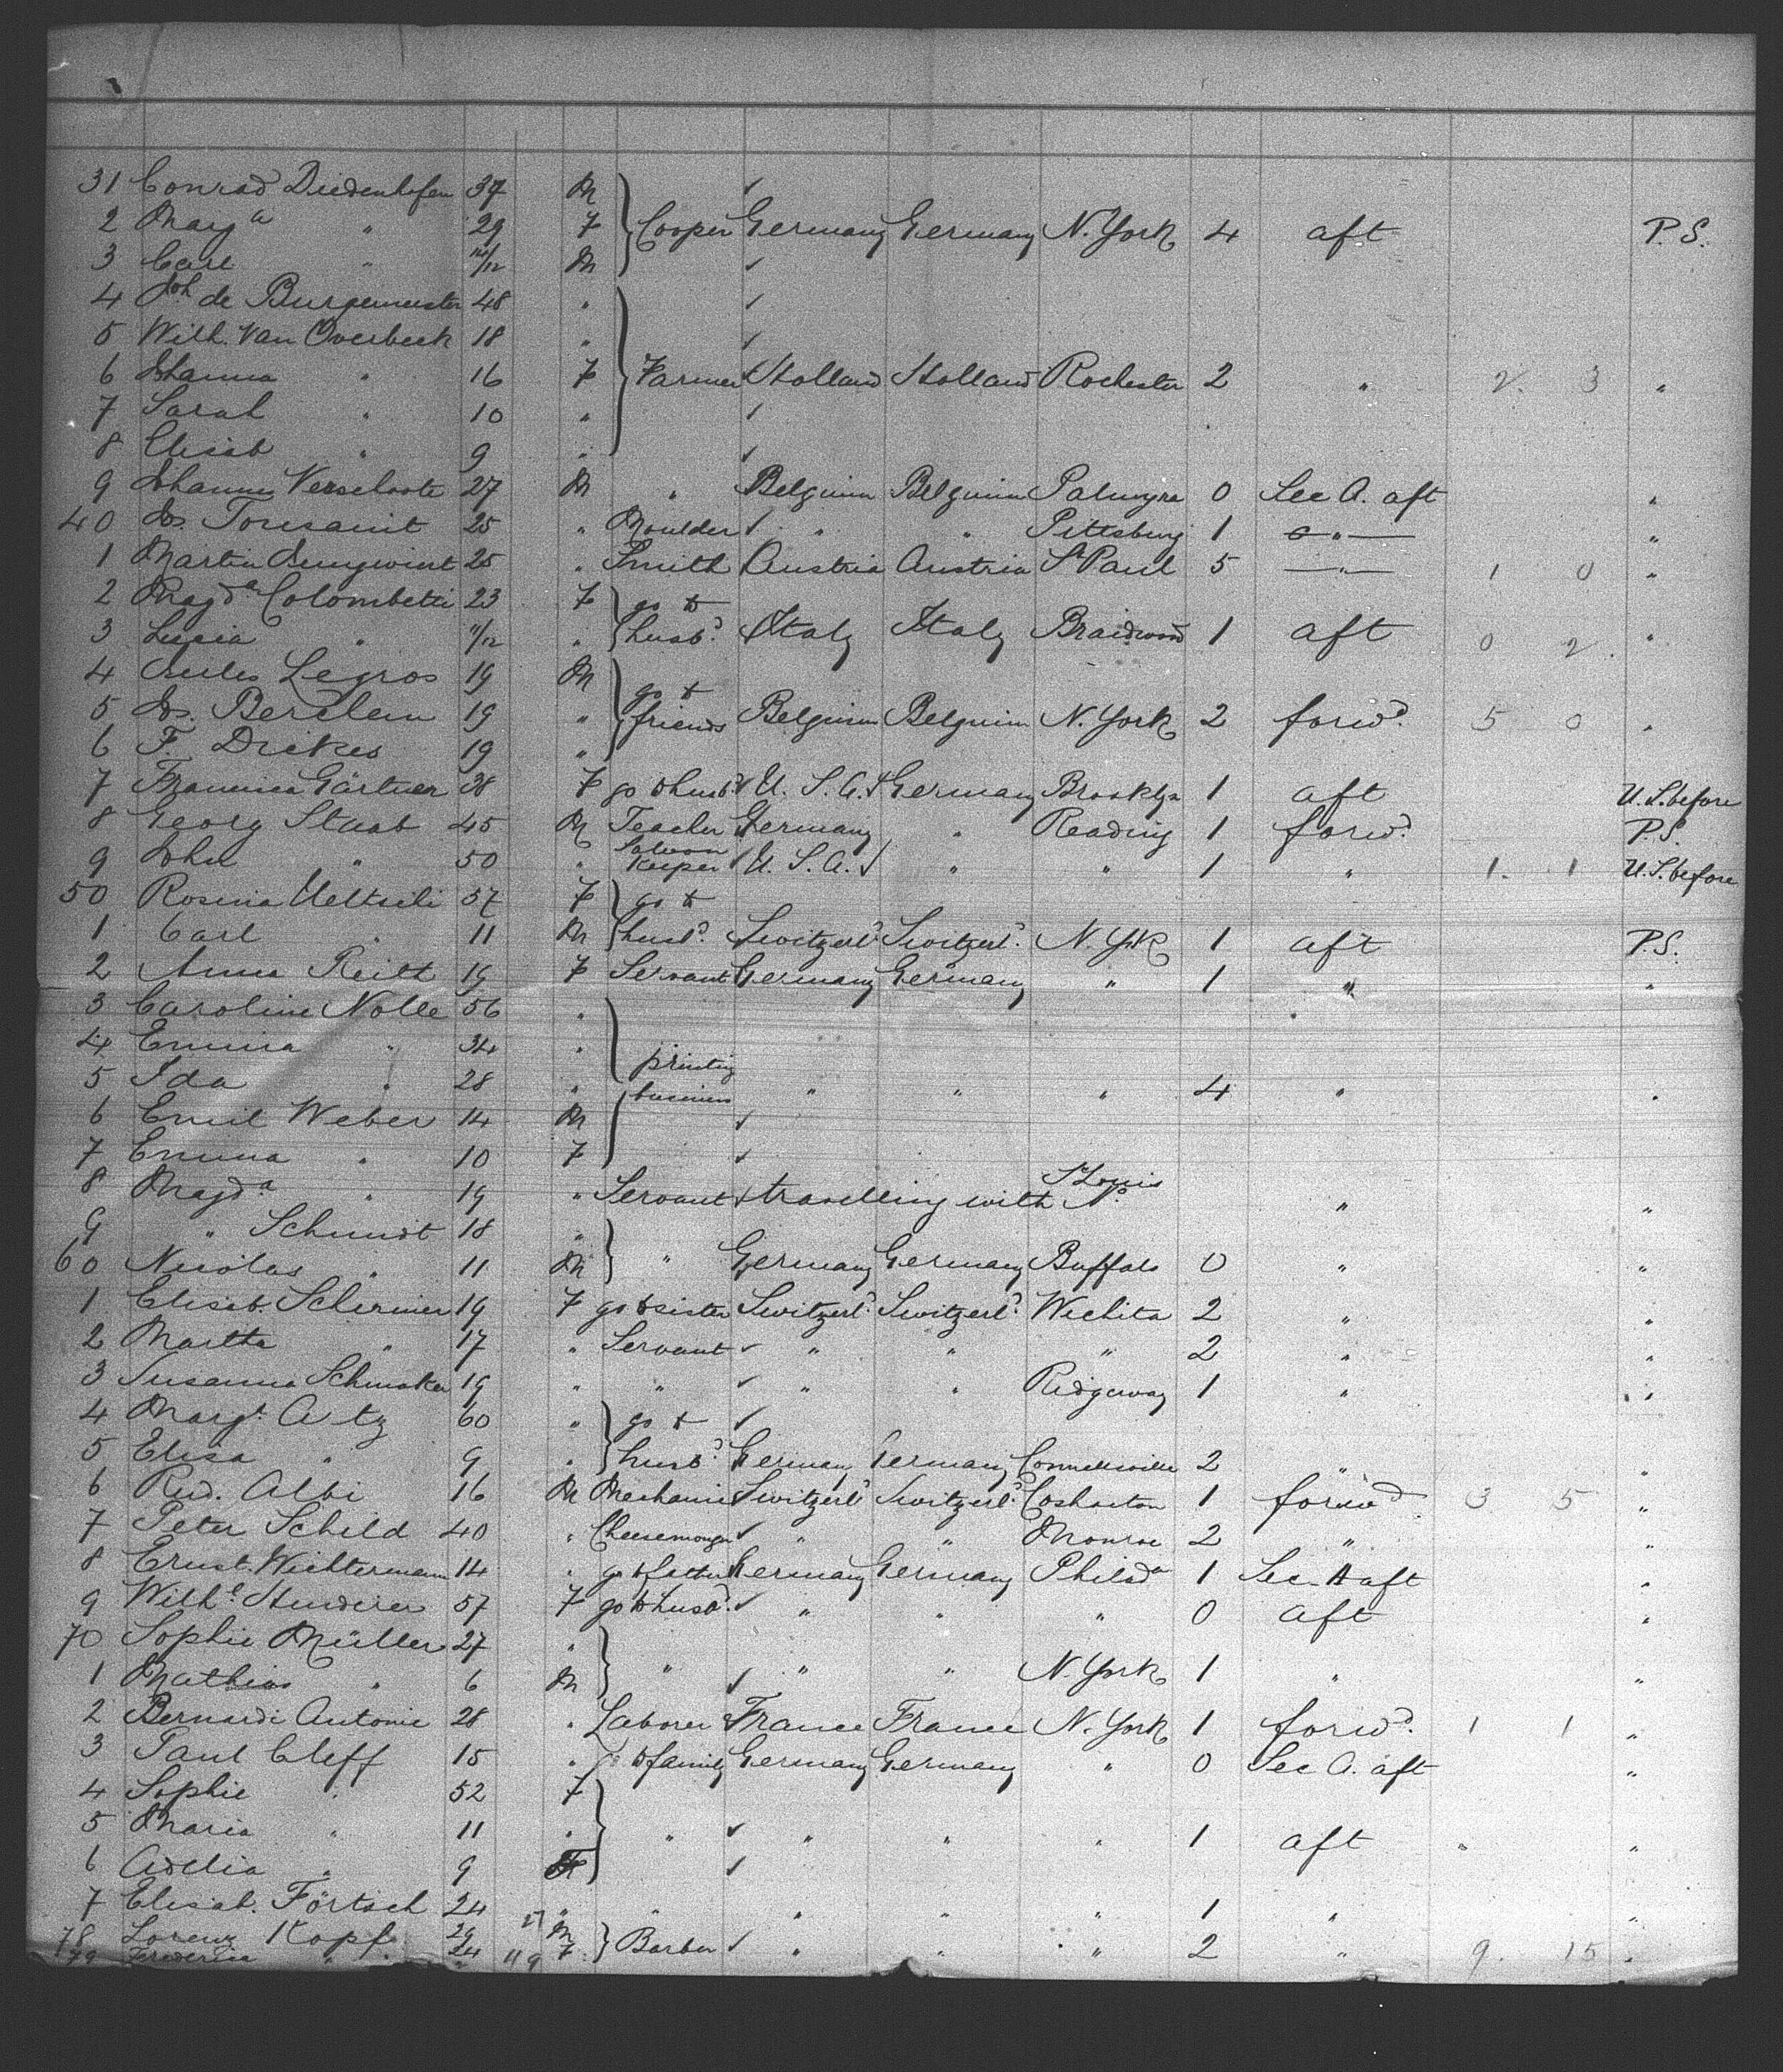 31 Conrad Diedenhofen 37 M
2 Marga " 29 F Cooper Germany Germany N. York 4 aft P.S.
3 Carl " /12 M
4 Joh de Burgemeester 48 "
5 Wilh. Van Overbeek 18 "
6 Johanna " 16 F Farmer Holland Holland Rochester 2 " 2 3 "
7 Sarah " 10 "
8 Elisab " 9 "
9 Johannes 27 M " Belgium Belgium Palmyra 0 Sec A. aft "
40 Js. Tousaint 25 " Moulder " " Pittsburg 1 " "
1 Martin 25 " Smith Austria Austria St Paul 5 " 1 0 "
2 Magda Colombetti 23 F go to
3 Lucia " 11/12 " husbd. Italy Italy Braidwood 1 aft 0 2 "
4 Jules Legros 19 M go to
5 Js. 19 " friends Belgium Belgium N. York 2 forwd. 5 0 "
6 F. Dickes 19 "
7 Francisca Gärtner 38 F go to husbd. U.S.A. Germany Brooklyn 1 aft U.S. before
8 Georg Staab 45 M Teacher Germany " Reading 1 forwd. P.S.
9 John " 50 " Saloon Keeper U.S.A. " " 1 " 1. 1 U.S. before
50 Rosina Ueltschi 57 F go to
1 Carl " 11 M husbd. Switzerld. Switzerld. N. York 1 aft P.S.
2 Anna Reitt 19 F Servant Germany Germany " 1 " "
3 Caroline Nolle 56 "
4 Emma " 34 " printing
5 Ida " 28 " business " " " 4 " "
6 Emil Weber 14 M
7 Emma " 10 F
8 Magda " 19 " Servant travelling with No St Louis " "
9 " Schmidt 18 "
60 Nicolas " 11 M " Germany Germany Buffalo 0 " "
1 Elisab. Schirmer 19 F go to sister Switzerld. Switzerld. Wichita 2 " "
2 Martha " 17 " Servant " " " 2 " "
3 Susanna Schmoker 19 " " " " Ridgeway 1 " "
4 Margt. Atz 60 " go to
5 Elisa " 9 " husbd. Germany Germany Connellsville 2 " "
6 Rud. Albi 16 M Mechanic Switzerld Switzerld. Coshocton 1 forwd 3 5 "
7 Peter Schild 40 " Cheesemonger " " Monroe 2 " "
8 Ernst. Wichtermann 14 " go to father Germany Germany Philada 1 Sec A aft "
9 Wilhe 57 F go to husbd. " " " 0 aft "
70 Sophie Müller 27 "
1 Mathias " 6 M " " " N. York 1 " "
2 Bernardi Antonie 28 " Laborer France France N. York 1 forwd. 1 1 "
3 Paul Cleff 15 " go to family Germany Germany " 0 Sec A. aft "
4 Sophie " 52 F
5 Maria " 11 " " " " " 1 aft " "
6 Adelia " 9 F
7 Elisab. Förtsch 24 " " " " " 1 " "
78 Lorenz Kopf 29 M
79 Frederica " 24 119 F Barber " " " 2 " 9. 15 "